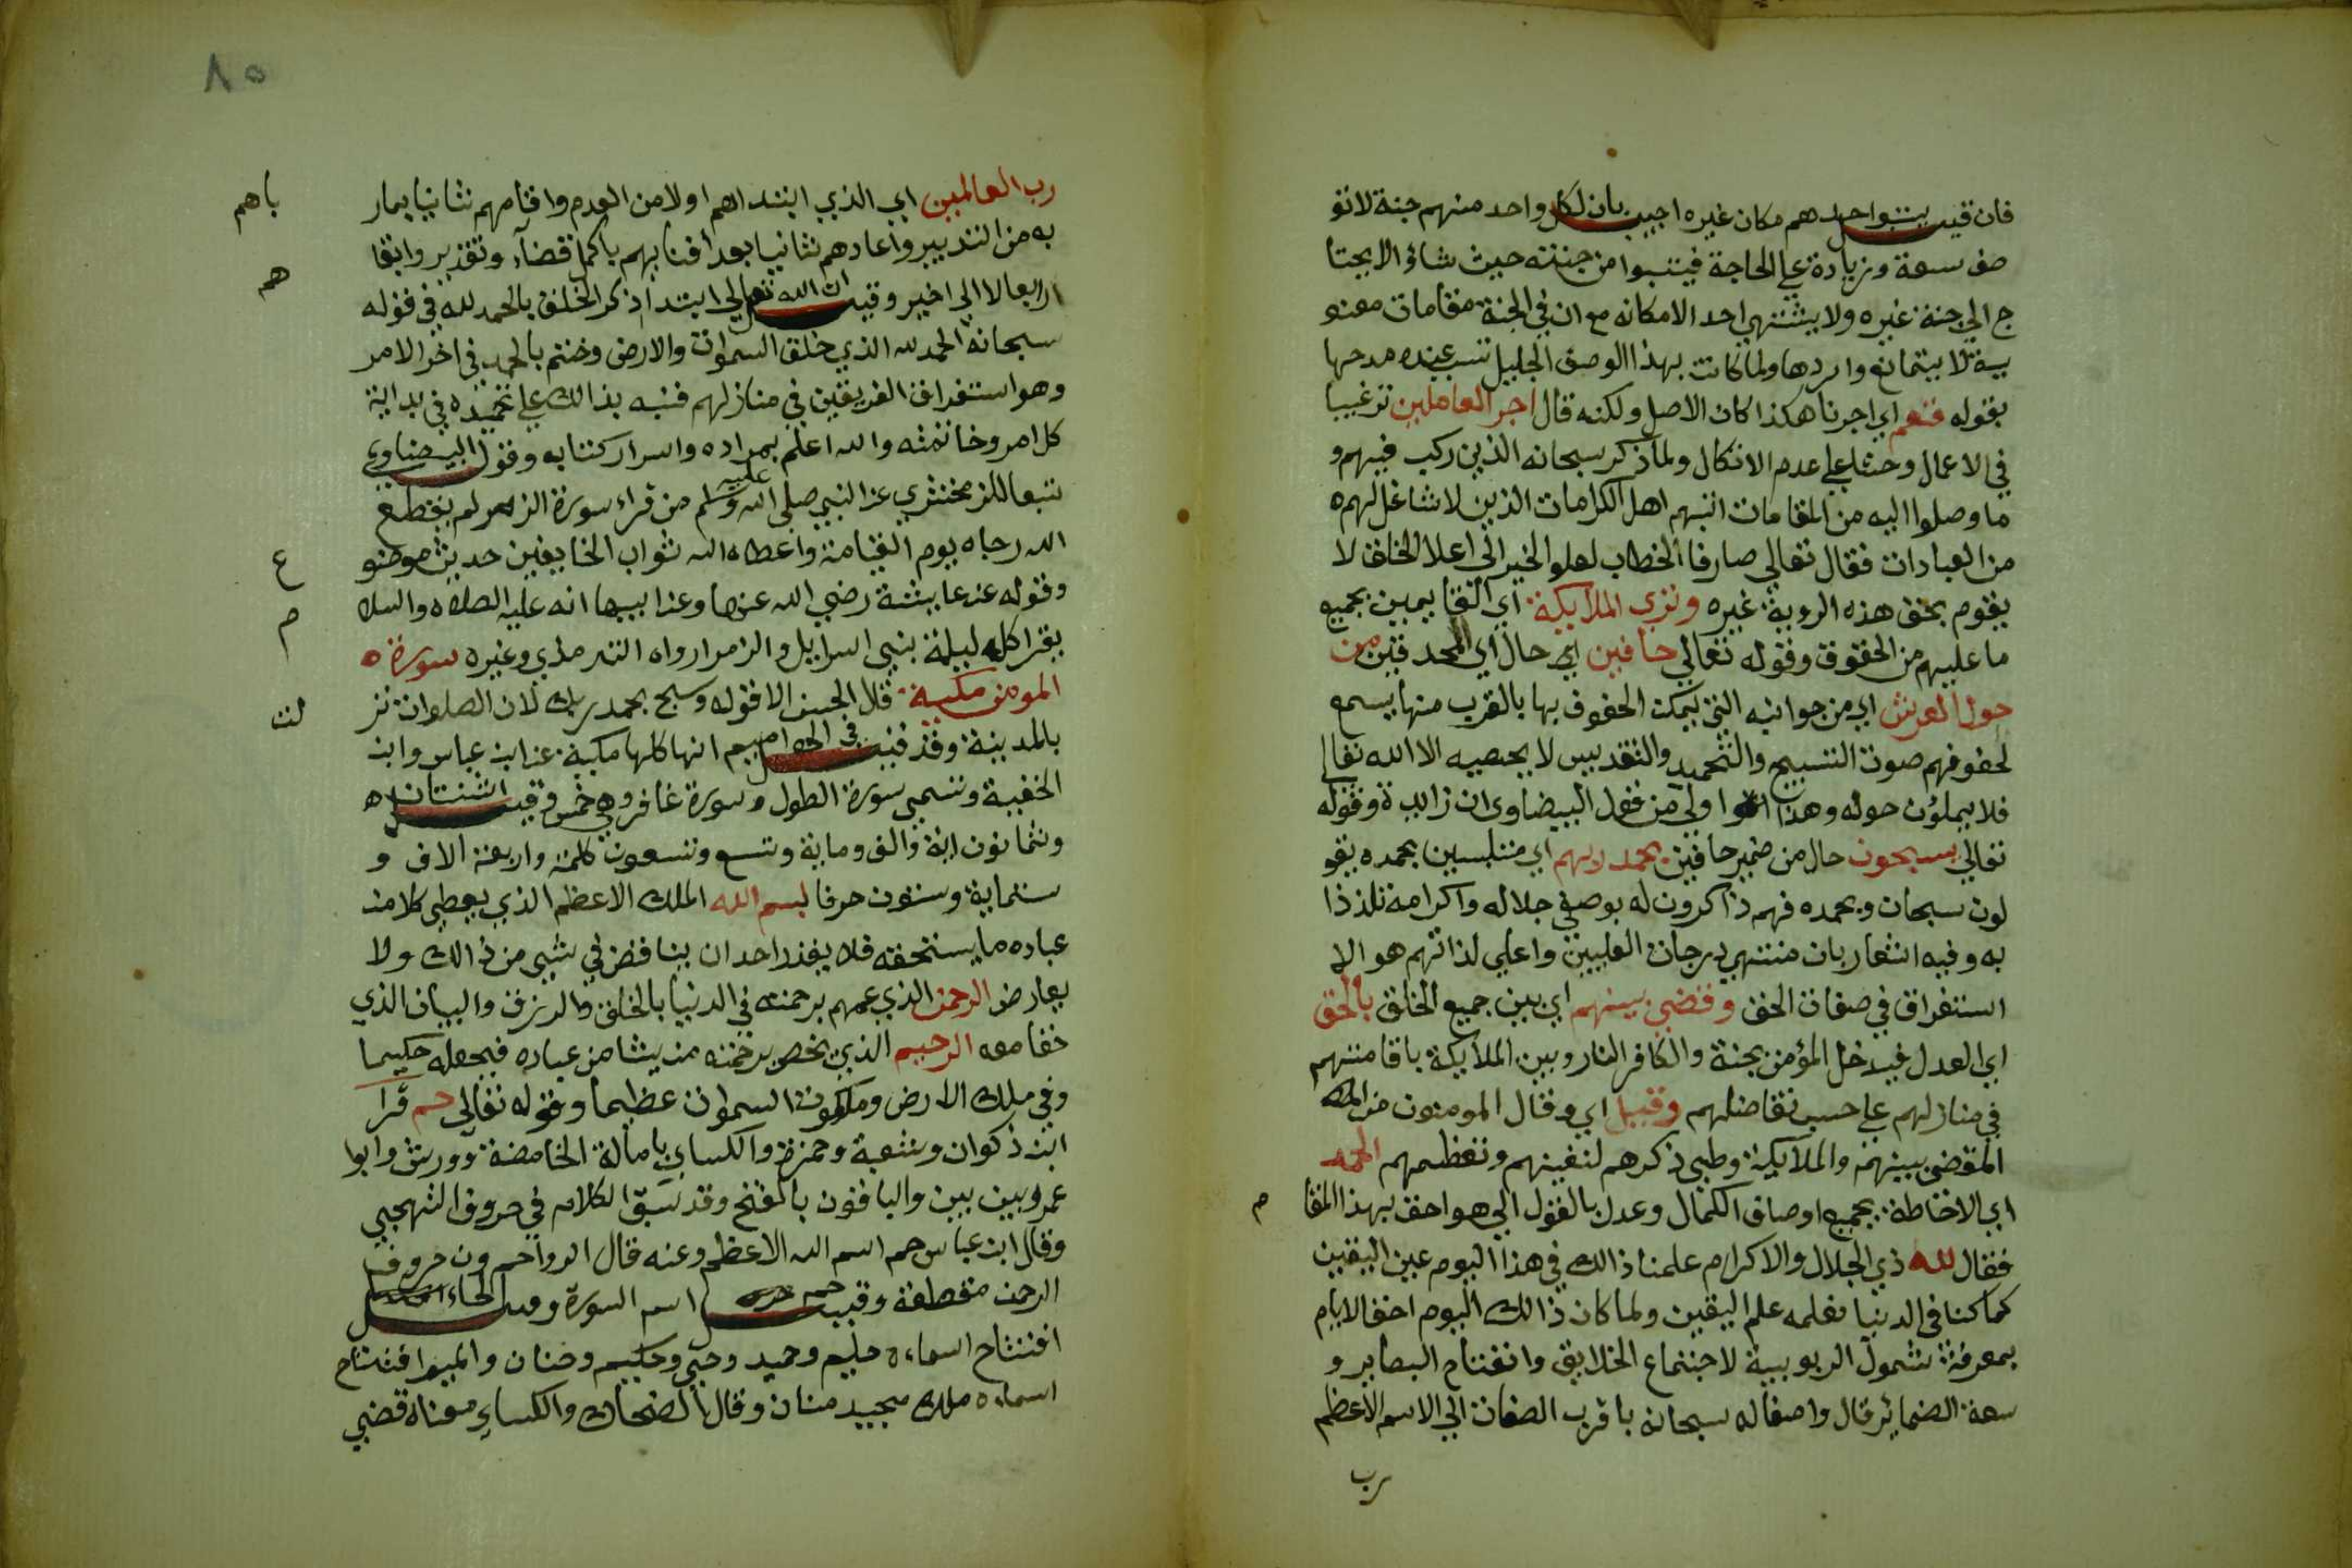 فان قيل يتبوا احدهم مكان غيره اجيب بان لكل واحد منهم جنة لا تو
صف سعة وزيادة علي الحاجة فيتبوا من جنته حيث شاؤ الا يحتا
ج الي جنة غيره ولا يشتهي احد الا مكانه مع ان في الجنة مقامات معنو
ية لا يتمانع واردها ولما كانت بهذا الوصف الجليل تسبب عنه مدحها
بقوله فنعم اي اجرنا هكذا كان الاصل ولكنه قال اجر العاملين ترغيبا
في الاعمال وحثا علي عدم الاتكال ولما ذكر سبحانه الذين ركب فيهم و
ما وصلوا اليه من المقامات اتبعهم اهل الكرامات الذين لا شاغل لهم ه
من العبادات فقال تعالي صارفا الخطاب لعلو الخبر الي اعلا الخلق لا
يقوم بحق هذه الروية غيره وتري الملايكة اي القايمين بجميع
ما عليهم من الحقوق وقوله تعالي حافين اي حال اي المحدقين من
حول العرش اي من جوانبه التي يمكن الحفوف بها بالقرب منها يسمع
لحفوفهم صوت التسبيح والتحميد والتقديس لا يحصيه الا الله تعالي
فلا يملؤن حوله وهذا اولي من قول البيضاوي ان زايدة وقوله
تعالي يسبحون حال من ضمير حافين بحمد ربهم اي متلبسين بحمده يقو
لون سبحان وبحمده فهم ذاكرون له بوصفي جلاله واكرامه تلذذا
به وفيه اشعار بان منتهي درجات العليين واعلي لذاتهم هو الا
استغراق في صفات الحق وقضي بينهم اي بين جميع الخلق بالحق
اي العدل فيدخل المؤمن بجنة والكافر النار وبين الملايكة باقامتهم
في منازلهم علي حسب تفاضلهم وقيل اي وقال المومنون من
المقضي بينهم والملايكة وطي ذكرهم لتعينهم وتعظيمهم الحمد
اي الاحاطة بجميع اوصاف الكمال وعدل بالقول الي هو احق بهذا المقا
م
فقال لله ذي الجلال والاكرام علمنا ذالك في هذا اليوم عين اليقين
كما كنا في الدنيا نعلمه علم اليقين ولما كان ذالك اليوم احق الايام
بمعرفة شمول الربوبية لاجتماع الخلايق وانفتاح البصاير و
سعة الضماير قال واصفا له سبحانه باقرب الصفات الي الاسم الاعظم
رب
٨٥
رب العالمين اي الذي ابتداهم اولا من العدم واقامهم ثانيا بمار
باهم
به من التدبير واعادهم ثانيا بعد افنايهم باكمل قضآء وتقدير وابقا
هم
ابعالا الي اخير وقيل ان الله تعالي ابتدا ذكر الخلق بالحمد لله في قوله
سبحانه الحمد لله الذي خلق السموات والارض وختم بالحمد في اخر الامر
وهو استقرار الفريقين في منازلهم فنبه بذالك علي تحميده في بداية
كل امر وخاتمته والله اعلم بمراده واسرار كتابه وقول البيضاوي
تبعا للزمخشري عن النبي صلي الله عليه وسلم من قراء سورة الزمر لم يقطع
الله رجاه يوم القيامة واعطاه الله ثواب الخايفين حديث موضو
ع
وقوله عن عايشة رضي الله عنها وعن ابيها انه عليه الصلاه والسلا
م
يقرا كل ليلة بني اسرايل والزمر رواه الترمذي وغيره سورة ه
المومن مكية قال الحسن الا قوله وسبح بحمد ربك لان الصلوات نز
لت
بالمدينة وقد قيل في الحواميم انها كلها مكية عن ابن عباس وابن
الحنفية وتسمي سورة الطول وسورة غافر وهي خمس وقيل اثنتان ه
وثمانون اية والف وماية وتسع وتسعون كلمة واربعة الاف و
ستماية وستون حرفا بسم الله الملك الاعظم الذي يعطي كلا من
عباده ما يستحقه فلا يقدر احد ان يناقض في شيي من ذالك ولا
يعارض الرحمن الذي عمهم برحمته في الدنيا بالخلق والرزق والبيان الذي
خفا معه الرحيم الذي يخص برحمته من يشا من عباده فيجعله حكيما
وفي ملك الارض وملكوت السموات عظيما وقوله تعالي حم قرا
ابن ذكوان وشعبة وحمزة والكساي بامالة الحا محضة وورش وابوا
عمرو بين بين والباقون بالفتح وقد سبق الكلام في حروف التهجي
وقال ابن عباس حم اسم الله الاعظم وعنه قال الر وحم ون حروف
الرحمن مقطعة وقيل حم اسم السورة وقيل الحاء
افتتاح اسماءه حليم وحميد وحي وحكيم وحنان والميم افتتاح
اسماءه ملك مجيد منان وقال الضحاك والكساي معناه قضي